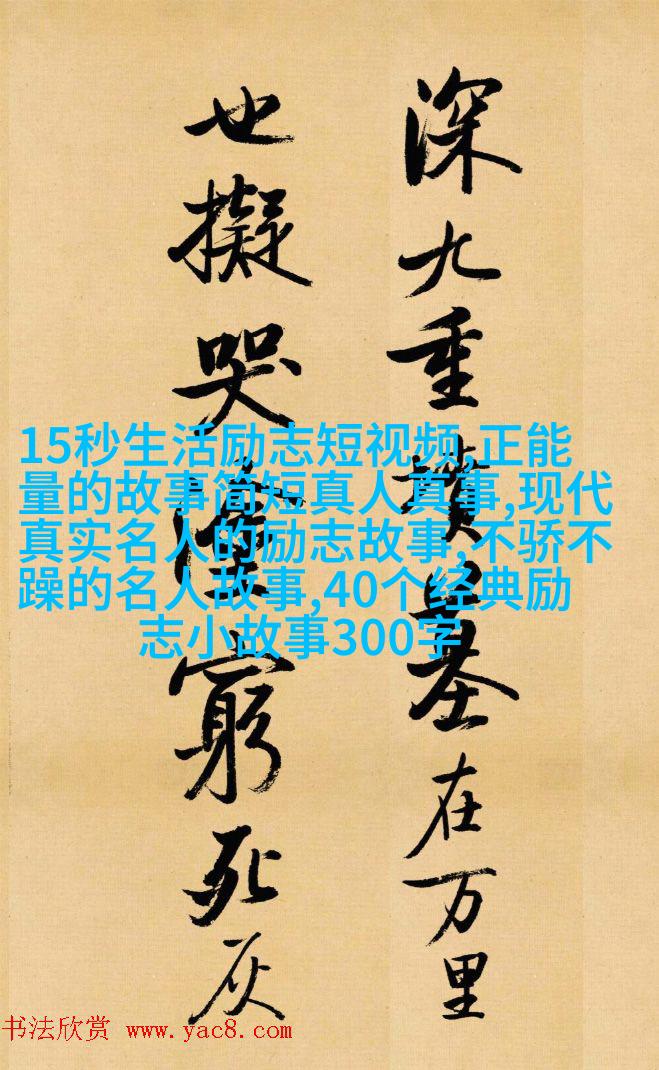 深九重墳墓在万里
也擬哭塗窮死灰
15秒生活励志短视频,正能
量的故事简短真人真事,现代
真实名人的励志故事,不骄不
躁的名人故事,40个经典励
志小故事300字
书法欣赏 www.yac8.com